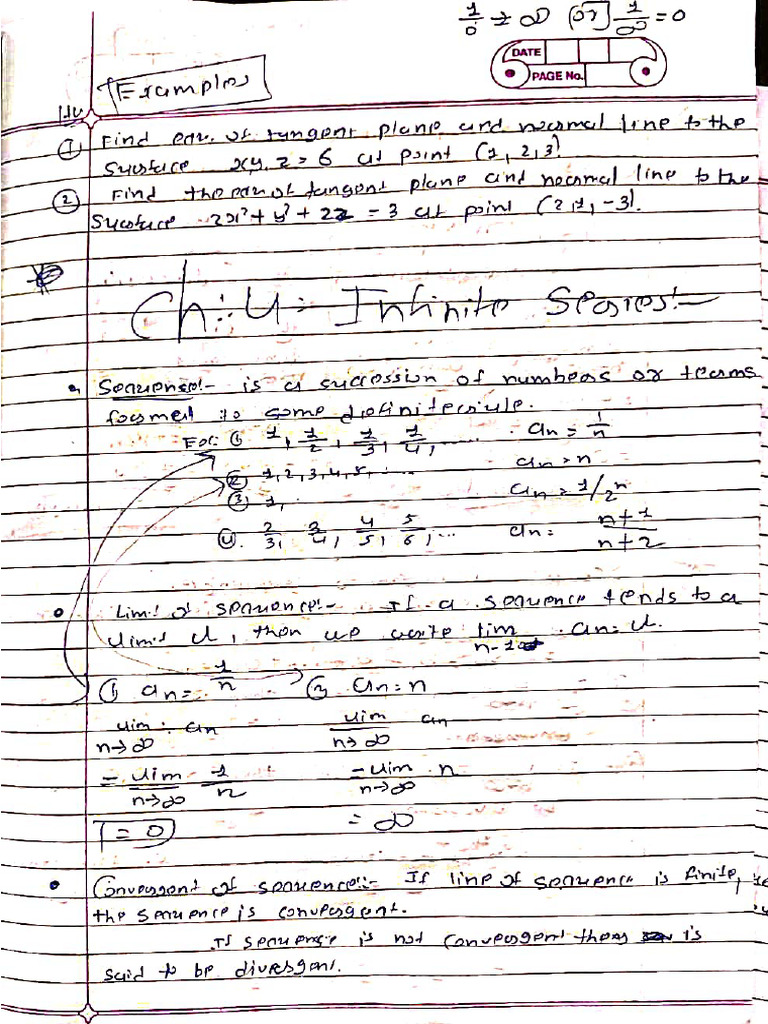 1/0 → ∞ (or) 1/∞ = 0
DATE
PAGE No.
Examples
Hw
① Find eqn. of tangent plane and normal line to the
surface xy.z = 6 at point (1, 2, 3)
② Find the eqn of tangent plane and normal line to the
surface 2x² + y² + 2z = 3 at point (2, 1, -3).
Ch:- 4 :- Infinite Series:-
Sequense:- is a succession of numbers or terms
formed to some definite rule.
For: ① 1, 1/2, 1/3, 1/4, ..... an = 1/n
② 1, 2, 3, 4, 5, ... an = n
③ 1, an = 1/2ⁿ
④. 2/3, 3/4, 4/5, 5/6, ... an = n+1/n+2
Limit of sequence:- If a sequence tends to a
limit l, then we write lim n→∞ an = l.
① an = 1/n ② an = n
lim n→∞ an lim n→∞ an
= lim n→∞ 1/n = lim n→∞ n
= 0 = ∞
Convergent of sequence:- If line of sequence is finite,
the sequence is convergent.
If sequence is not convergent then is
said to be divergent.